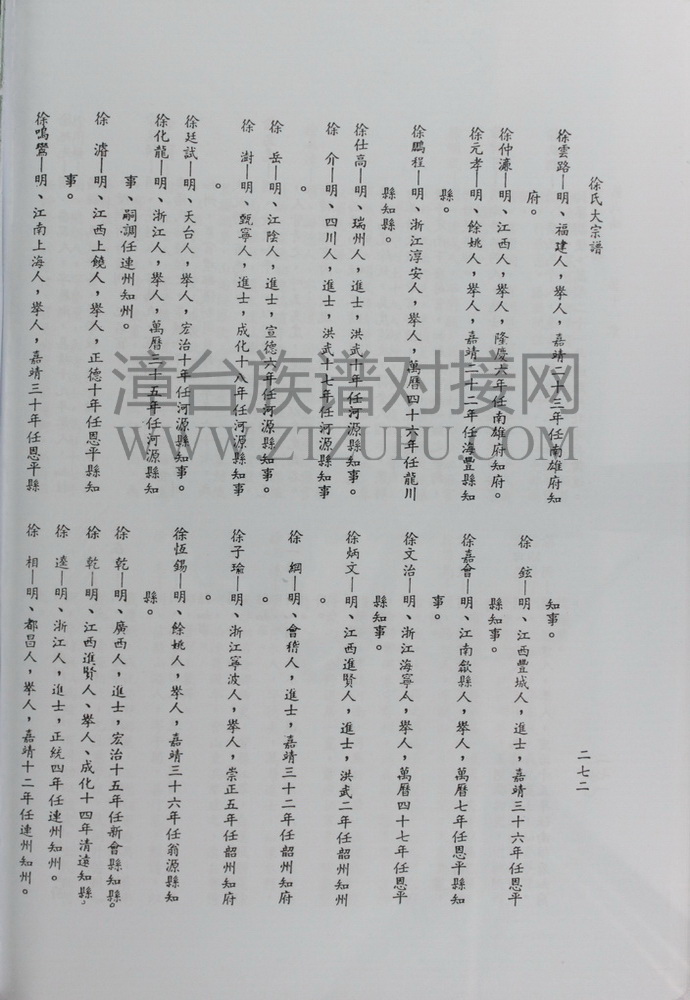 徐氏大宗譜
徐雲路—明、福建人，舉人，嘉靖二十三年任南雄府知
府。
徐仲濂—明、江西人，舉人，隆慶六年任南雄府知府。
徐元孝—明、餘姚人，舉人，嘉靖二十二年任海豐縣知
縣。
徐鵬程—明、浙江淳安人，舉人，萬曆四十六年任龍川
縣知縣。
徐仕高—明、瑞州人，進士，洪武十年任河源縣知事。
徐 介—明、四川人，進士，洪武十七年任河源縣知事
。
徐 岳—明、江陰人，進士，宣德六年任河源縣知事。
徐 澍—明、甄寧人，進士，成化十八年任河源縣知事
。
徐廷試—明、天台人，舉人，宏治十年任河源縣知事。
徐化龍—明、浙江人，舉人，萬曆三十五年任河源縣知
事、嗣調任連州知州。
徐 濬—明、江西上饒人，舉人，正德十年任恩平縣知
事。
徐鳴鸞—明、江南上海人，舉人，嘉靖三十年任恩平縣
知事。
徐 鉉—明、江西豐城人，進士，嘉靖三十六年任恩平
縣知事。
徐嘉會—明、江南歙縣人，舉人，萬曆七年任恩平縣知
事。
徐文治—明、浙江海寧人，舉人，萬曆四十七年任恩平
縣知事。
徐炳文—明、江西進賢人，進士，洪武二年任韶州知州
。
徐 綱—明、會稽人，進士，嘉靖三十二年任韶州知府
。
徐子瑜—明、浙江寧波人，舉人，崇正五年任韶州知府
。
徐恆錫—明、餘姚人，舉人，嘉靖三十六年任翁源縣知
縣。
徐 乾—明、廣西人，進士，宏治十五年任新會縣知縣。
徐 乾—明、江西進賢人、舉人、成化十四年清遠知縣。
徐 逵—明、浙江人，進士，正統四年任連州知州。
徐 相—明、都昌人，舉人，嘉靖十二年任連州知州。
二七二
漳台族谱对接网
WWW.ZTZUPU.COM